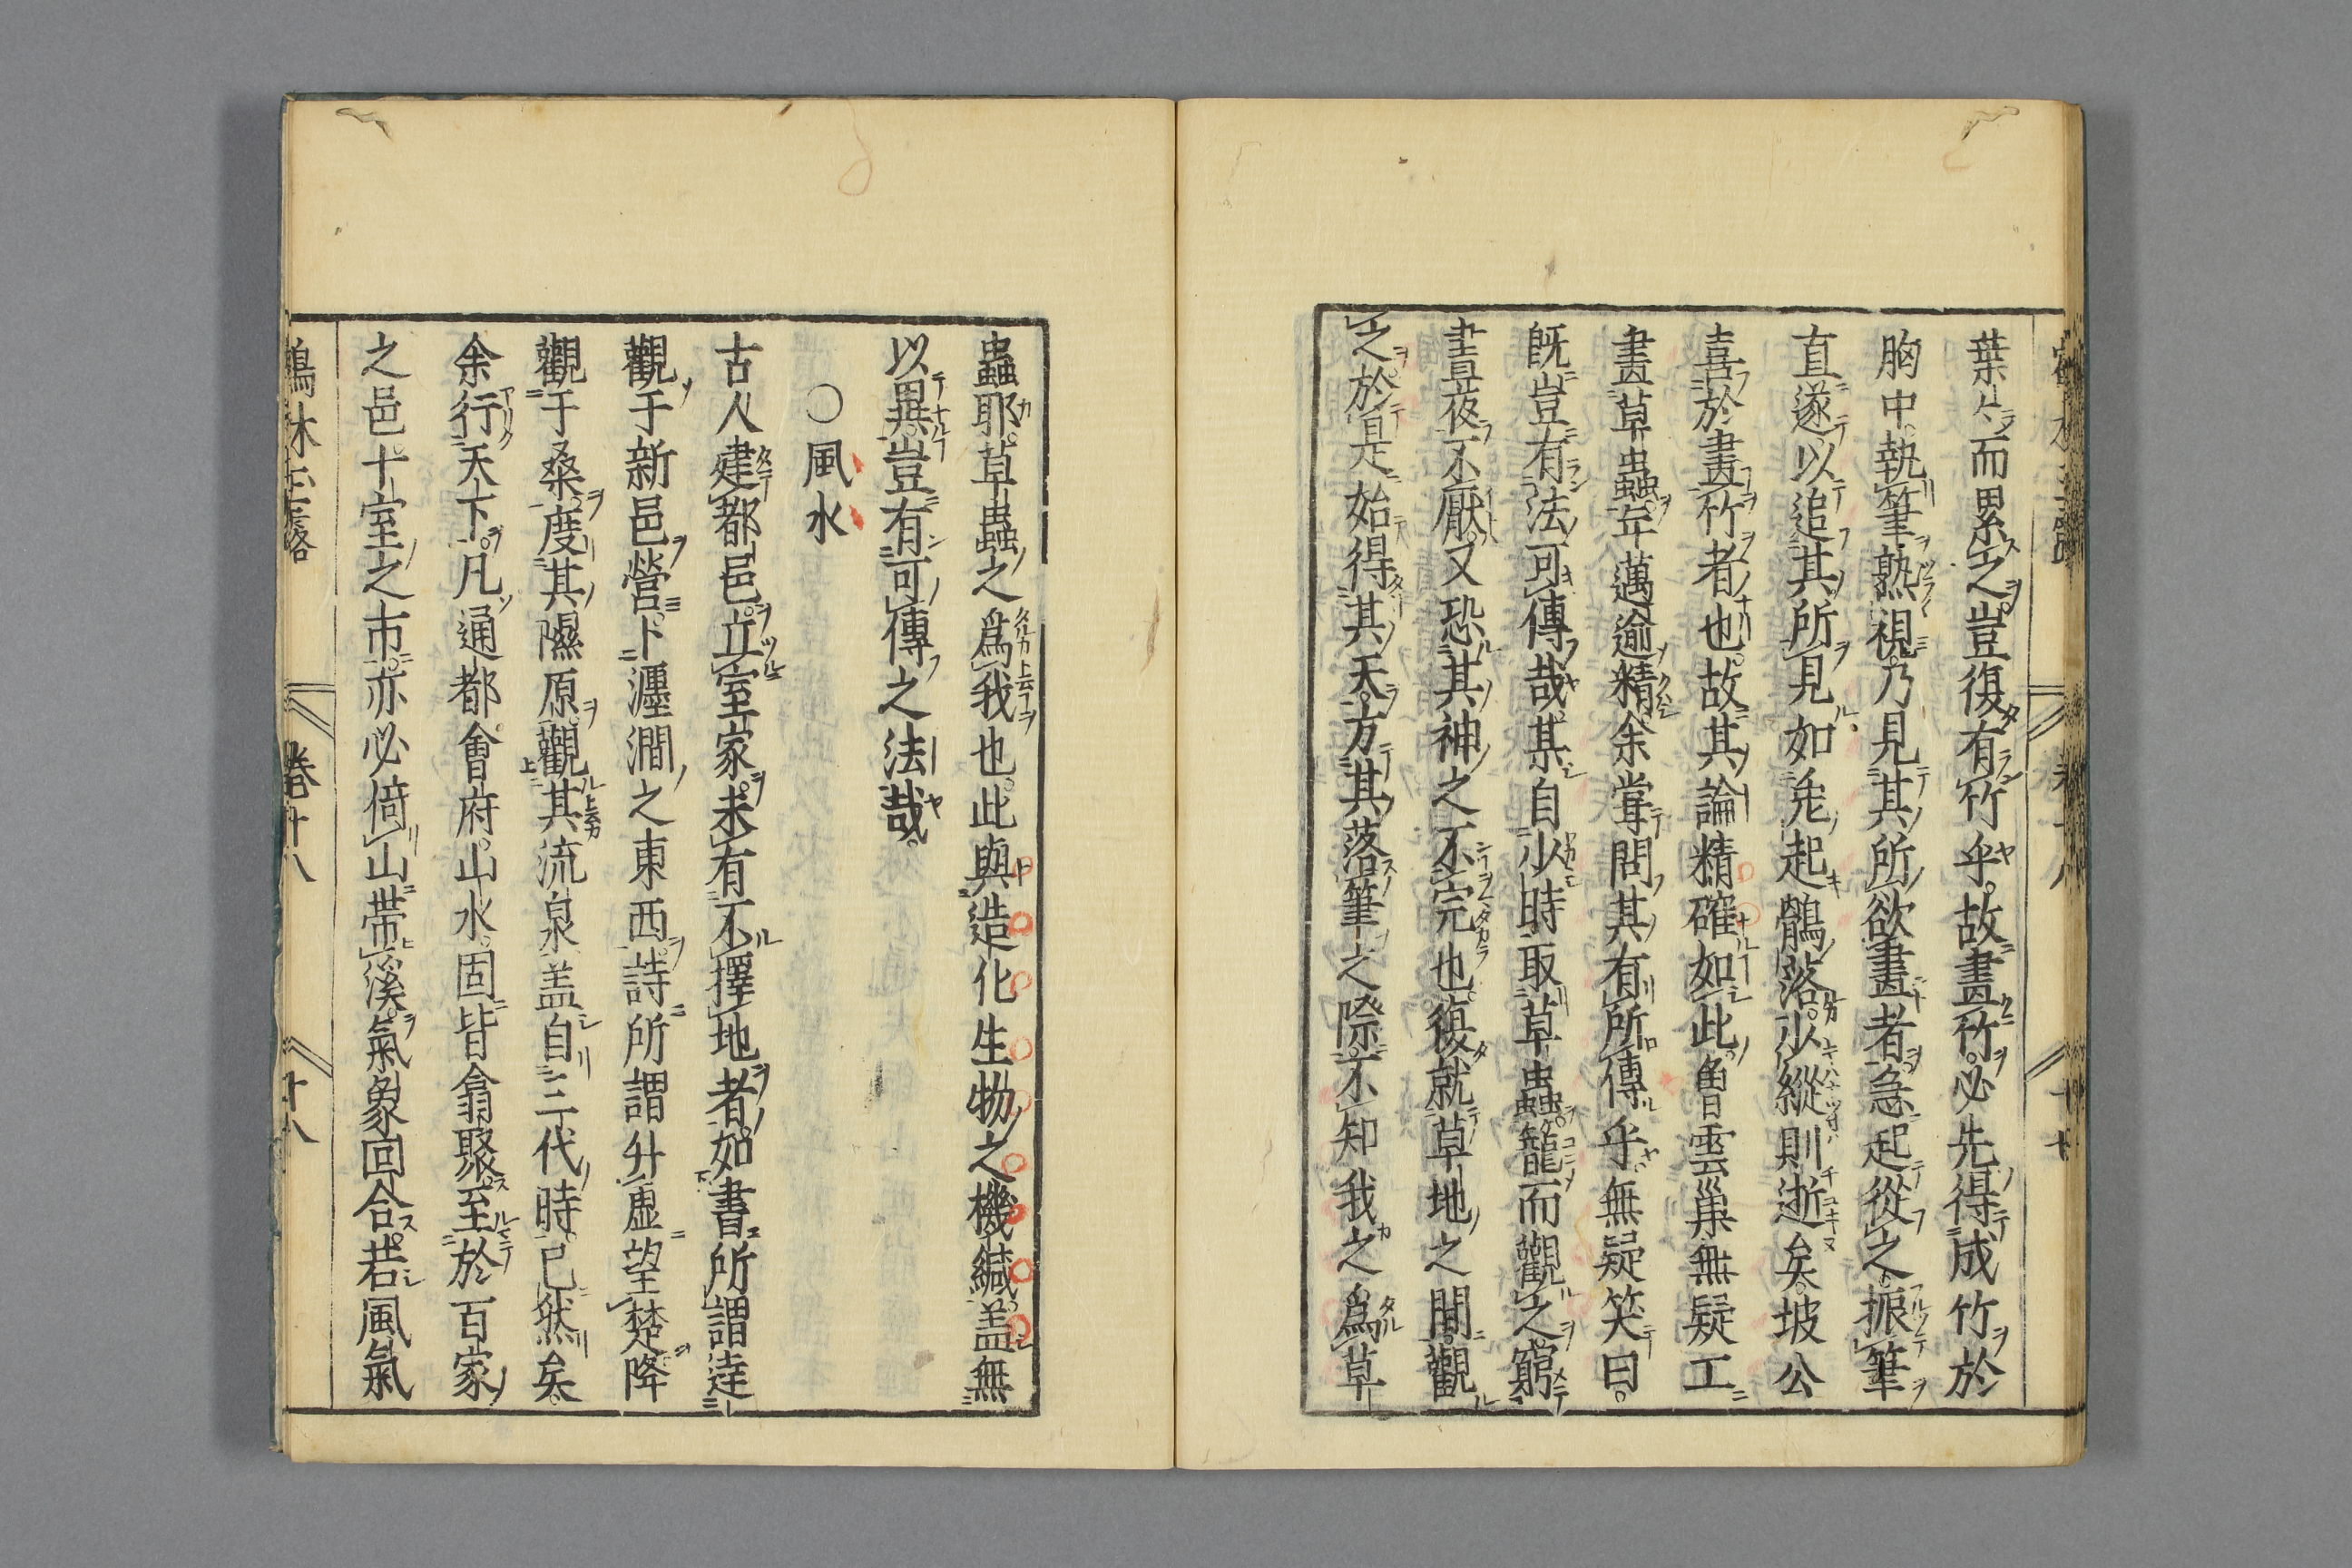 葉〻而累之豈復有竹乎故畫竹必先得成竹於
胸中執筆熟視乃見其所欲畫者急起從之振筆
直遂以追其所見如兎起鶻落少縱則逝矣坡公
喜於畫竹者也故其論精確如此曾雲巢無疑工
畫草蟲年邁逾精余嘗問其有所傳乎無疑笑曰
既豈有法可傳哉某自少時取草蟲籠而觀之窮
晝夜不厭又恐其神之不完也復就草地之間觀
之於是始得其天方其落筆之際不知我之爲草
蟲耶草蟲之爲我也此與造化生物之機緘盖無
以異豈有可傳之法哉
○風水
古人建都邑立室家未有不擇地者如書所謂達
觀于新邑營卜瀍澗之東西詩所謂升虛望楚降
觀于桑度其隰原觀其流泉盖自三代時已然矣
余行天下凡通都會府山水固皆翕聚至於百家
之邑十室之市亦必倚山帶溪氣象回合若風氣
鶴林玉露 卷十八 十八